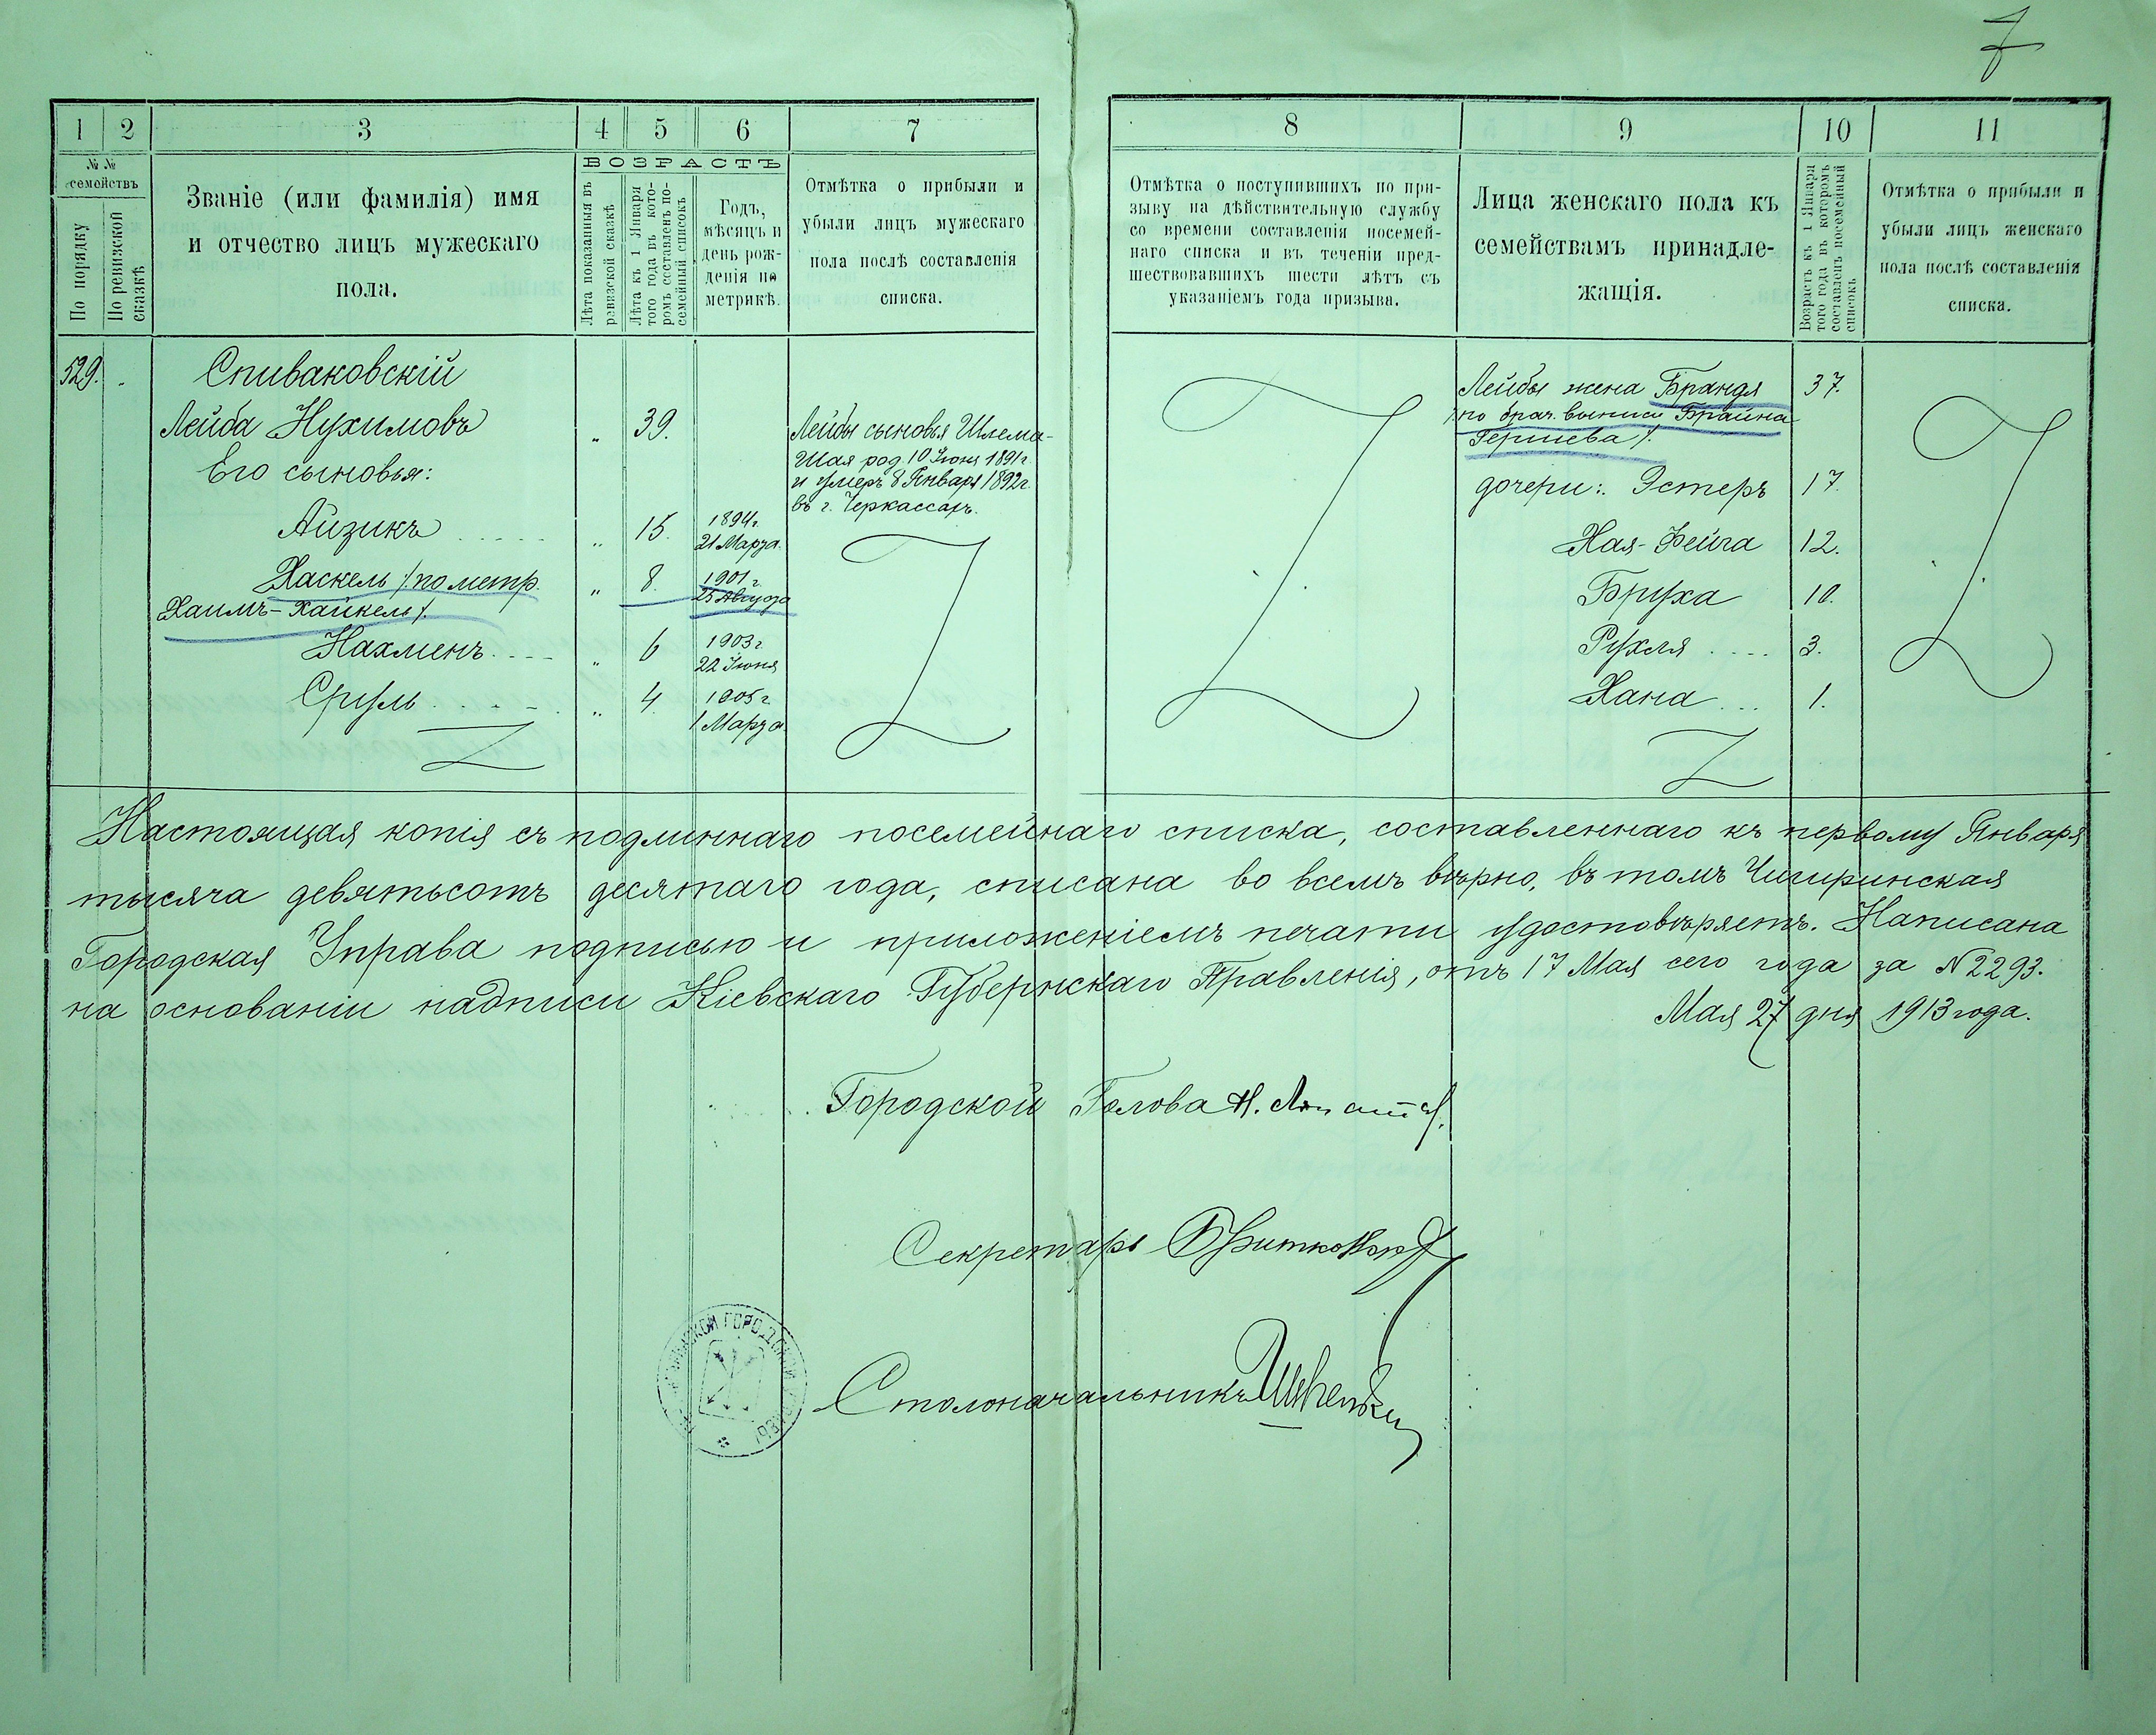 7
1 2 3 4 5 6 7 8 9 10 11
№ №
семействъ
По порядку
По ревизской сказкѣ
Званіе (или фамилія) имя
и отчество лицъ мужескаго
пола.
ВОЗРАСТЪ
Лѣта показанныя въ
ревизской сказкѣ
Лѣта къ 1 Января
того года въ кото-
ромъ составленъ по-
семейный списокъ
Годъ,
мѣсяцъ и
день рож-
денія по
метрикѣ.
Отмѣтка о прибыли и
убыли лицъ мужескаго
пола послѣ составленія
списка.
Отмѣтка о поступившихъ по при-
зыву на дѣйствительную службу
со времени составленія посемей-
наго списка и въ теченіи пред-
шествовавшихъ шести лѣтъ съ
указаніемъ года призыва.
Лица женскаго пола къ
семействамъ принадле-
жащія.
Возрастъ къ 1 Января
того года въ которомъ
составленъ посемейный
списокъ
Отмѣтка о прибыли и
убыли лицъ женскаго
пола послѣ составленія
списка.
529.
Спиваковскій
Лейба Нухимовъ " 39.
Его сыновья:
Айзикъ " 15. 1894 г.
21 Марта.
Хаскель /по метр. " 8. 1901 г.
Хаимъ-Хайкель/. 25 Августа
Нахменъ " 6 1903 г
22 Іюня
Сруль " 4. 1905 г
1 Марта.
Лейбы сыновья Шлема-
Шая род. 10 Іюня 1891 г.
и умеръ 8 Января 1892 г.
въ г. Черкассахъ.
Лейбы жена Брандя 37.
/по брач. выписи Брайна
Гершева/.
дочери: Эстеръ 17.
Хая-Фейга 12.
Бруха 10.
Рухля 3.
Хана 1.
Настоящая копія съ подлиннаго посемейнаго списка, составленнаго къ первому Января
тысяча девятьсотъ десятаго года, списана во всемъ вѣрно, въ томъ Чигиринская
Городская Управа подписью и приложеніемъ печати удостовѣряетъ. Написана
на основаніи надписи Кіевскаго Губернскаго Правленія, отъ 17 Мая сего года за N 2293.
Мая 27 дня 1913 года.
Городской Голова Н.
Секретарь
Столоначальникъ
ГОРОДСКОЙ